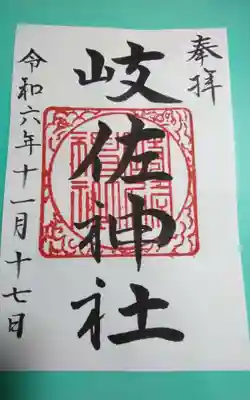 奉拝
岐佐神社
令和六年十一月十七日